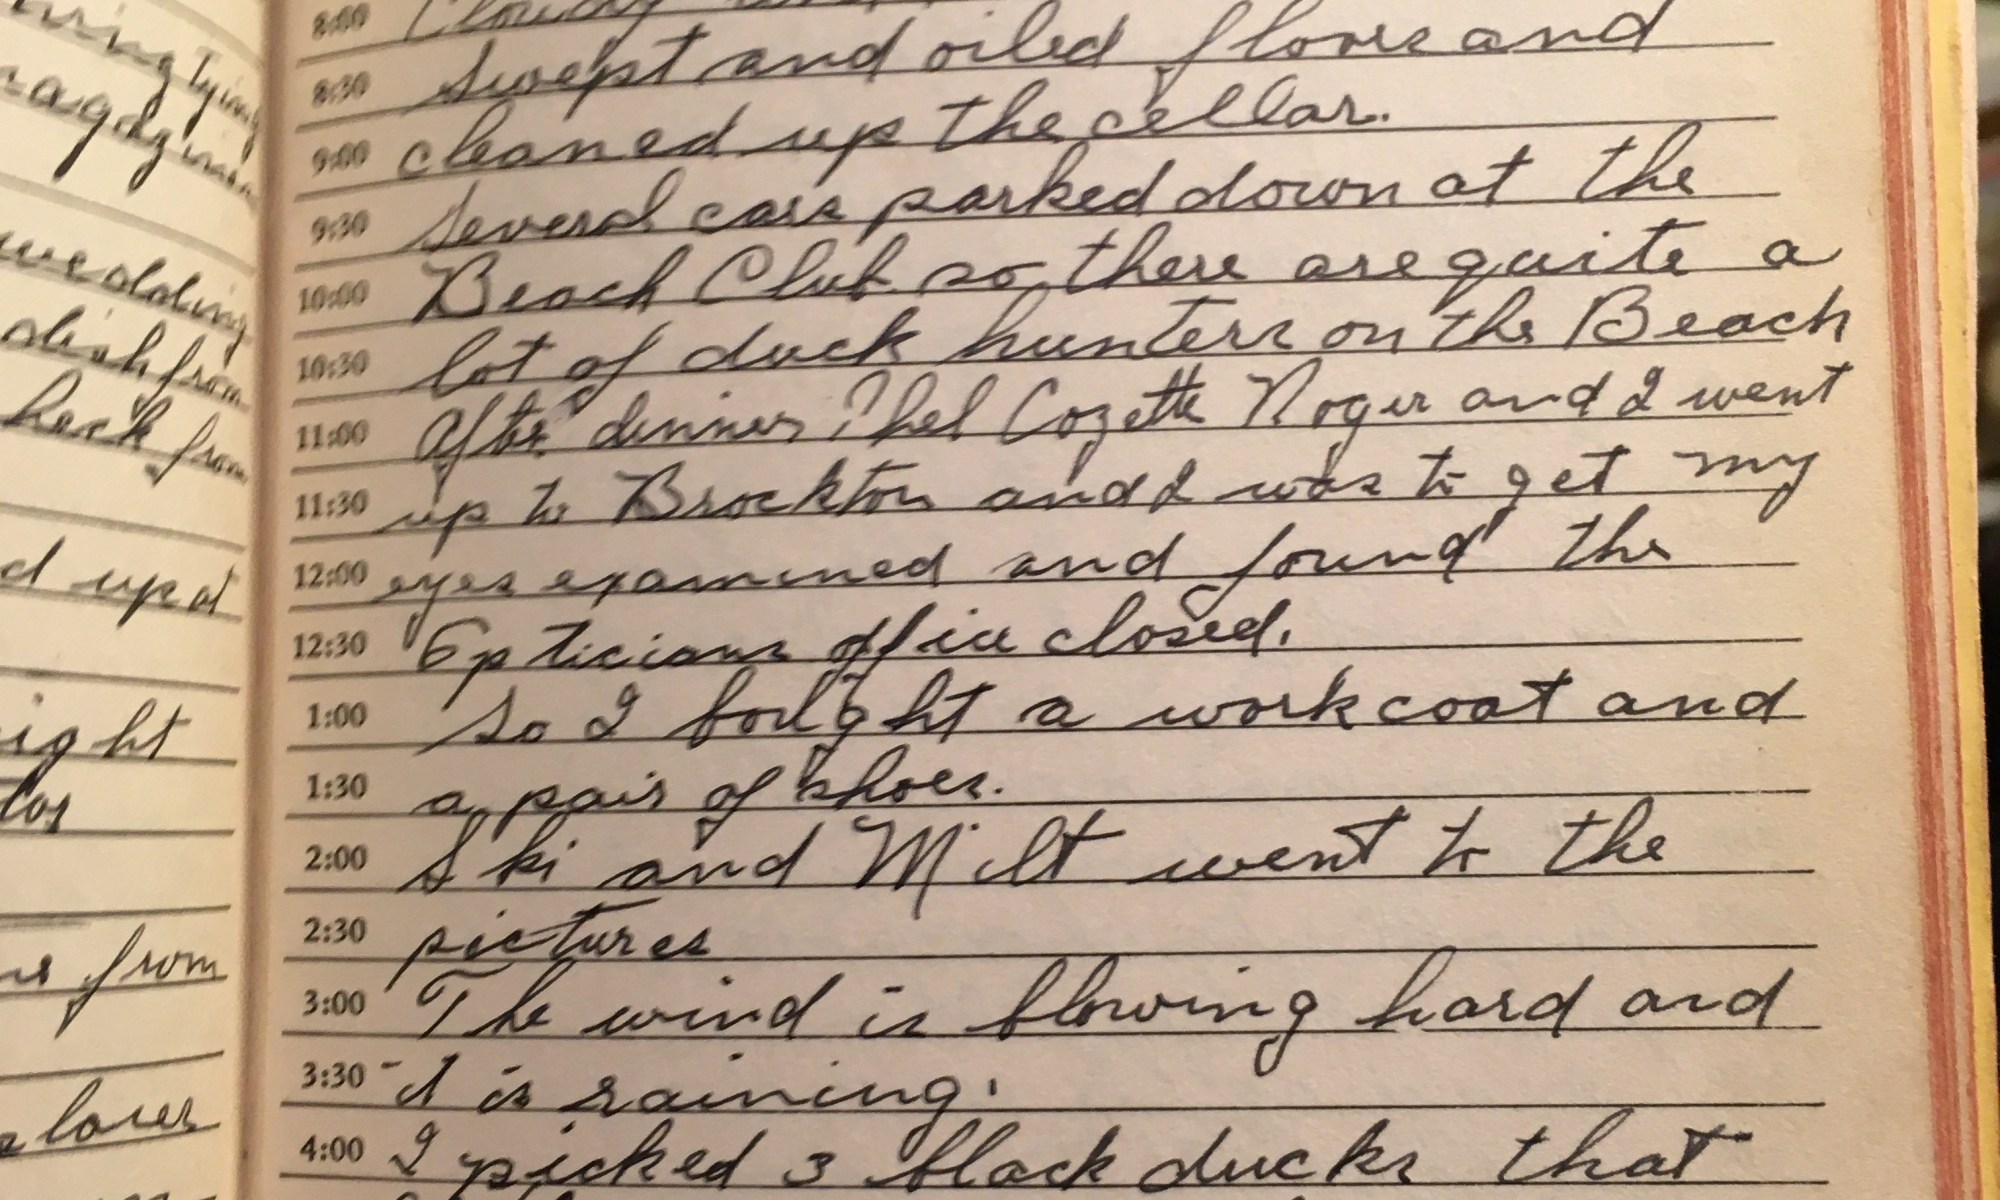 wedding
dish from
heck from
d up at
ight
from
8:00 Cloudy
8:30 Swept and oiled floors and
9:00 cleaned up the cellar.
9:30 Several cars parked down at the
10:00 Beach Club so there are quite a
10:30 lot of duck hunters on the Beach
11:00 After dinner Phel Cozette Roger and I went
11:30 up to Brockton and I was to get my
12:00 eyes examined and found the
12:30 Opticians office closed.
1:00 So I bought a work coat and
1:30 a pair of shoes.
2:00 Ski and Milt went to the
2:30 pictures
3:00 The wind is blowing hard and
3:30 it is raining.
4:00 I picked 3 black ducks that